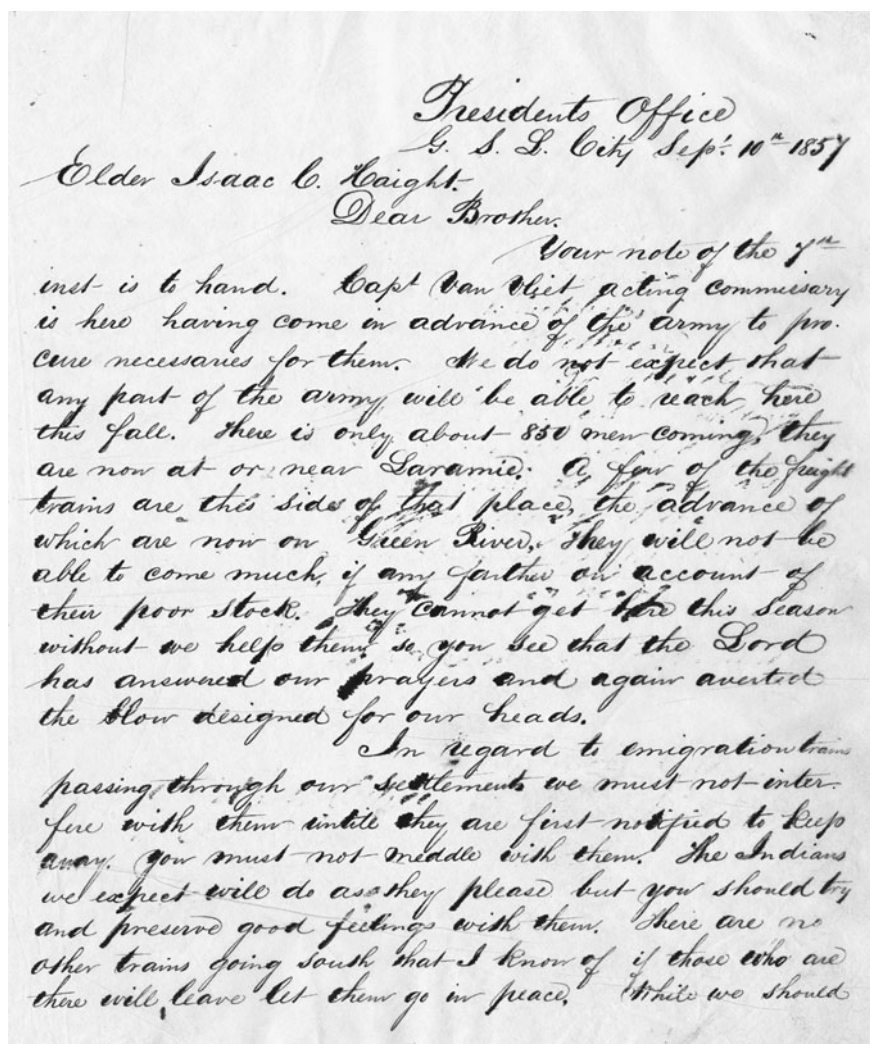 Presidents Office
G. S. L. City Sept. 10th 1857
Elder Isaac C. Haight.
Dear Brother.
Your note of the 7th
inst is to hand. Capt Van Vliet acting commissary
is here having come in advance of the army to pro-
cure necessaries for them. We do not expect that
any part of the army will be able to reach here
this fall. There is only about 850 men coming, they
are now at or near Laramie. A few of the freight
trains are this side of that place, the advance of
which are now on Green River. They will not be
able to come much, if any farther on account of
their poor stock. They cannot get here this season
without we help them. so you see that the Lord
has answered our prayers and again averted
the blow designed for our heads.
In regard to emigration trains
passing through our settlements we must not inter-
fere with them untill they are first notified to keep
away. you must not meddle with them. The Indians
we expect will do as they please but you should try
and preserve good feelings with them. There are no
other trains going south that I know of if those who are
there will leave let them go in peace. While we should